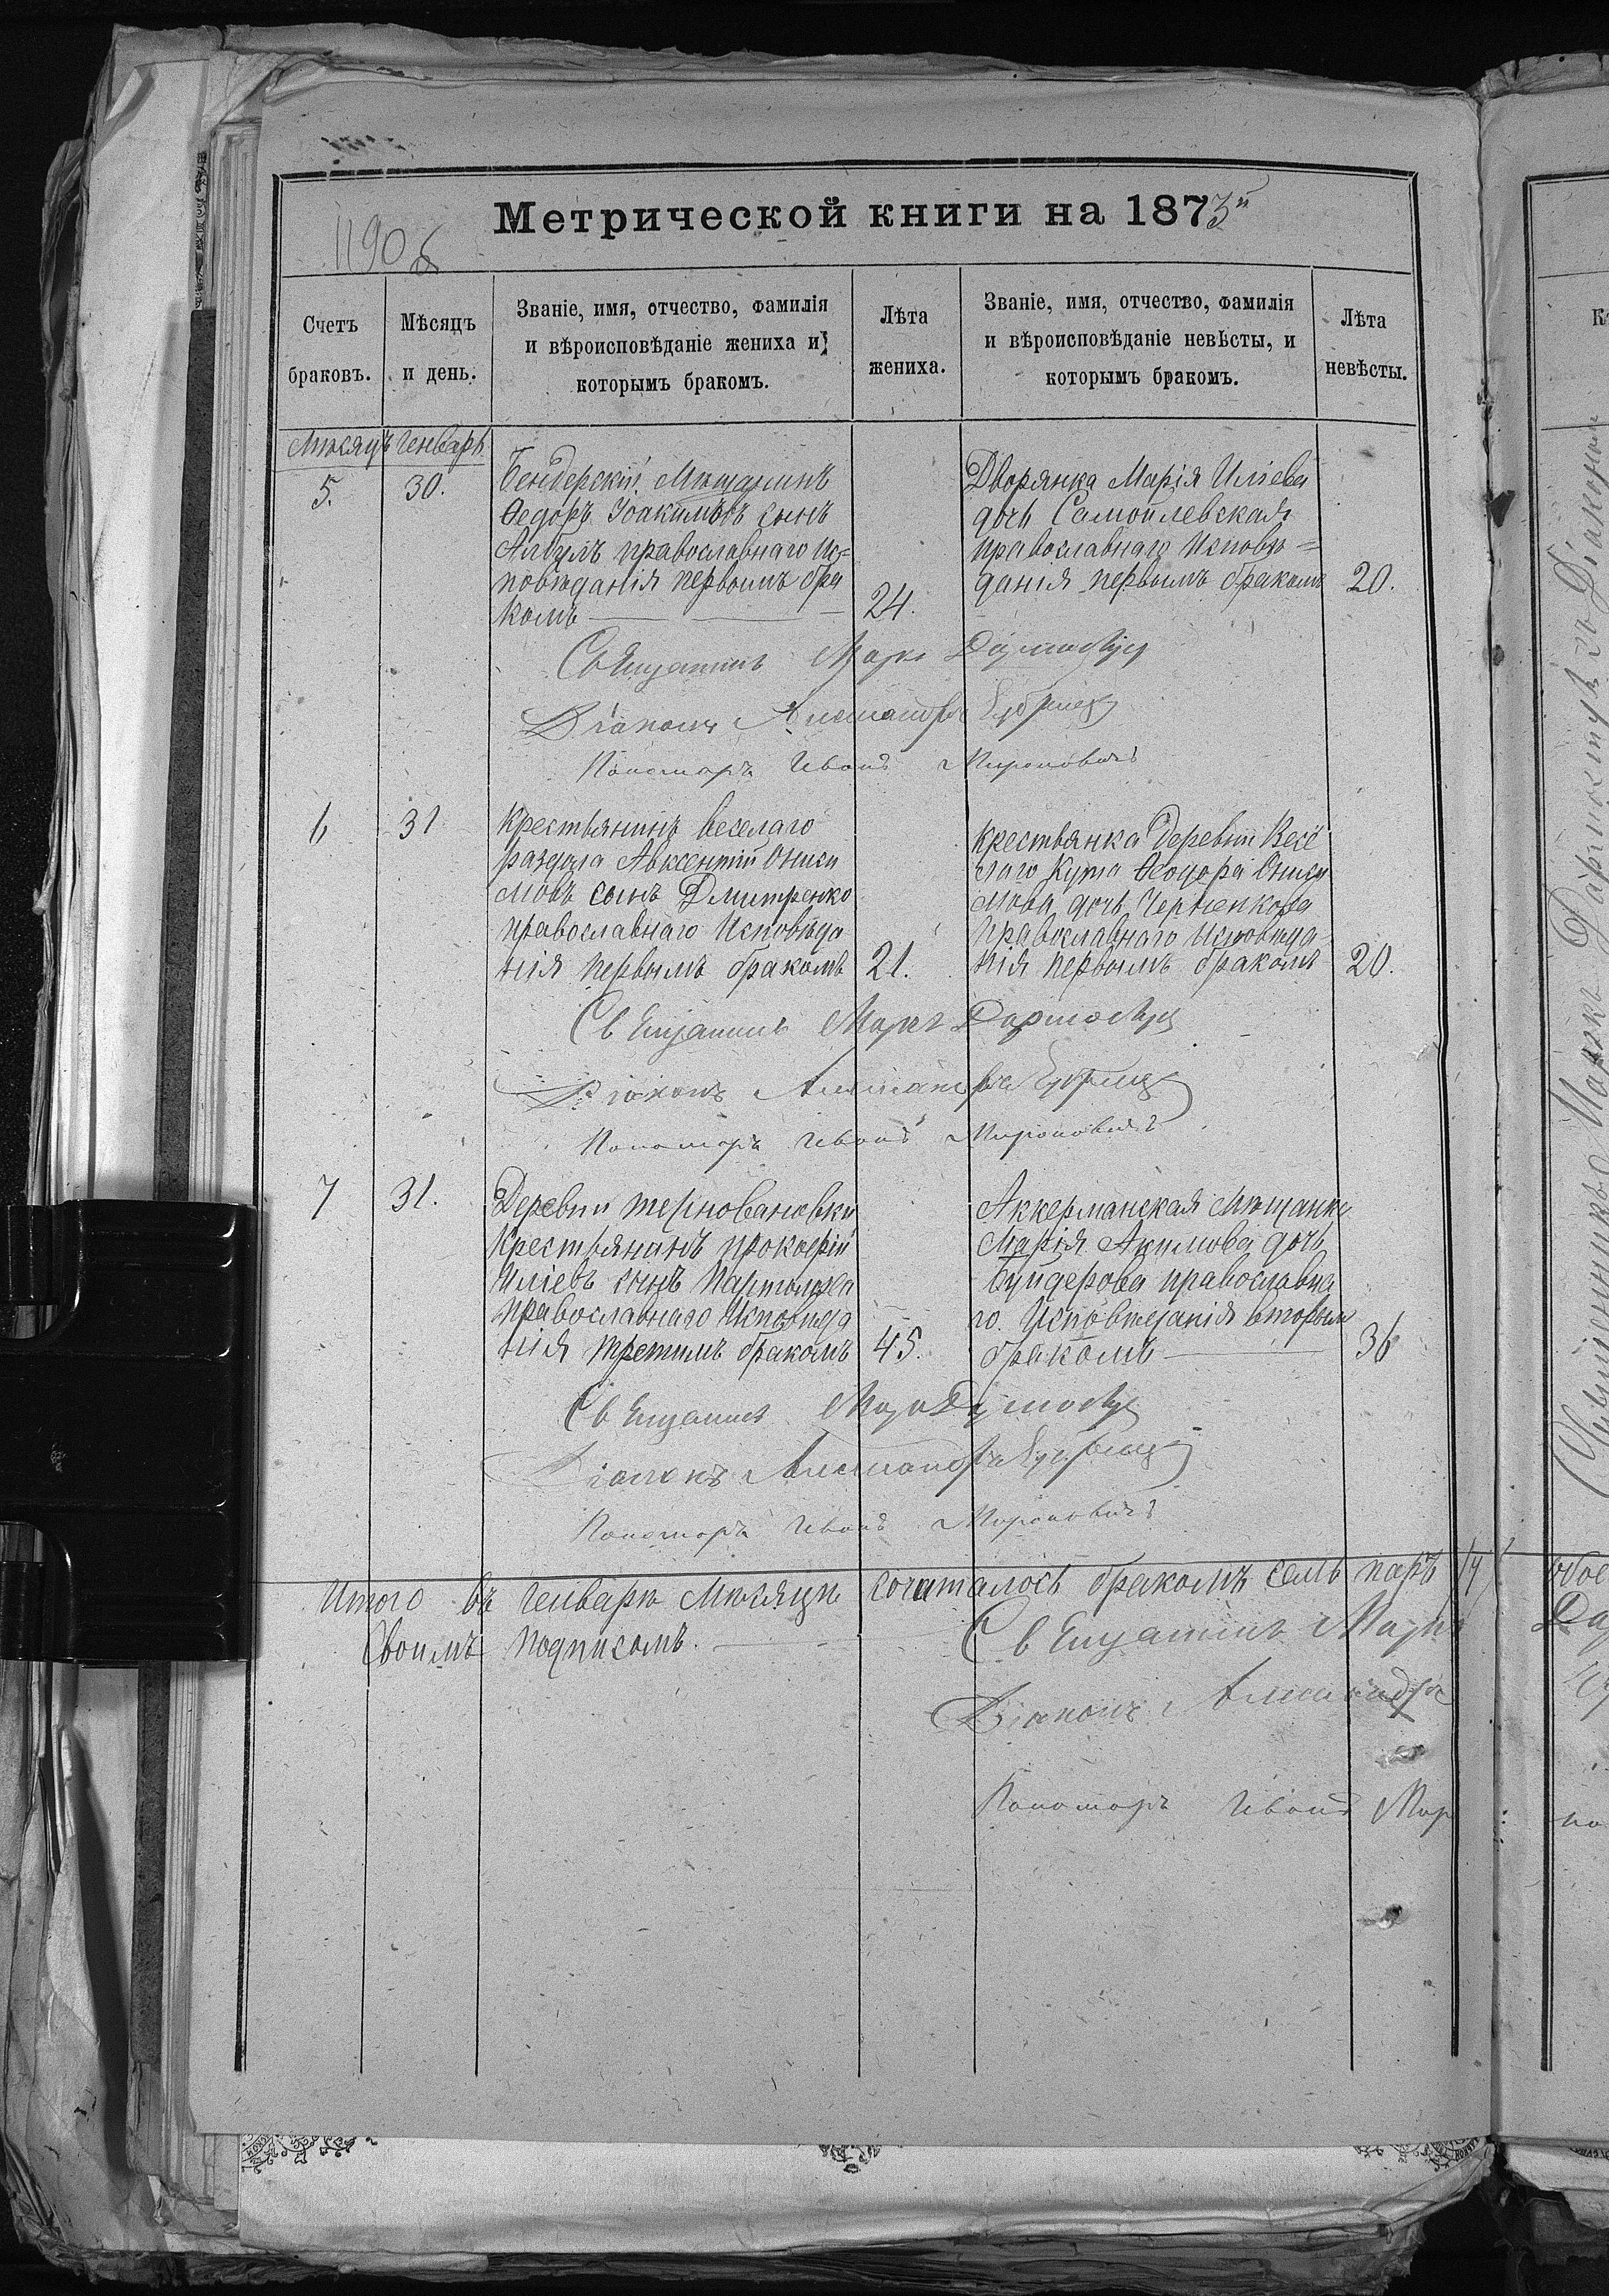 Метрической книги на 1873й
1190б
Счетъ браковъ.
Мѣсяцъ и день.
Званіе, имя, отчество, фамилія
и вѣроисповѣданіе жениха и
которымъ бракомъ.
Лѣта жениха.
Званіе, имя, отчество, фамилія
и вѣроисповѣданіе невѣсты, и
которымъ бракомъ.
Лѣта невѣсты.
Мѣсяцъ Генварь
5. 30.
Бендерскій Мѣщанинъ
Ѳедоръ Іоакимовъ сынъ
православнаго Ис=
повѣданія первымъ бра
комъ
24.
Дворянка Марія Иліева
дочь Самойлевская
православнаго Исповѣ=
данія первымъ бракомъ
20.
Священникъ Марко
Діаконъ Александръ
Пономарь Иванъ Мироновичъ
6 31
Крестьянинъ веселаго
раздола Авксентій Ониси
мовъ сынъ Дмитренко
православнаго Исповѣда
нія первымъ бракомъ
21.
крестьянка Деревни Весё
лаго Кута Ѳеодора Ониси
мова дочь Черненкова
Православнаго Исповѣда
нія первымъ бракомъ
20.
Священникъ Марко
Діаконъ Александръ
Пономарь Иванъ Мироновичъ
7 31.
Деревни терновановки
Крестьянинъ прокофій
Иліевъ сынъ
православнаго Исповѣда
нія третимъ бракомъ
45.
Аккерманская Мѣщанка
Марія Акимова дочь
православна
го Исповѣданія вторым
бракомъ
36
Священникъ
Діаконъ Александръ
Пономарь Иванъ Мироновичъ
Итого въ Генварѣ Мѣсяцѣ сочеталось бракомъ семь паръ
Своимъ подписомъ.
Священникъ Марко
Діаконъ Александръ
Пономарь Иванъ Мир